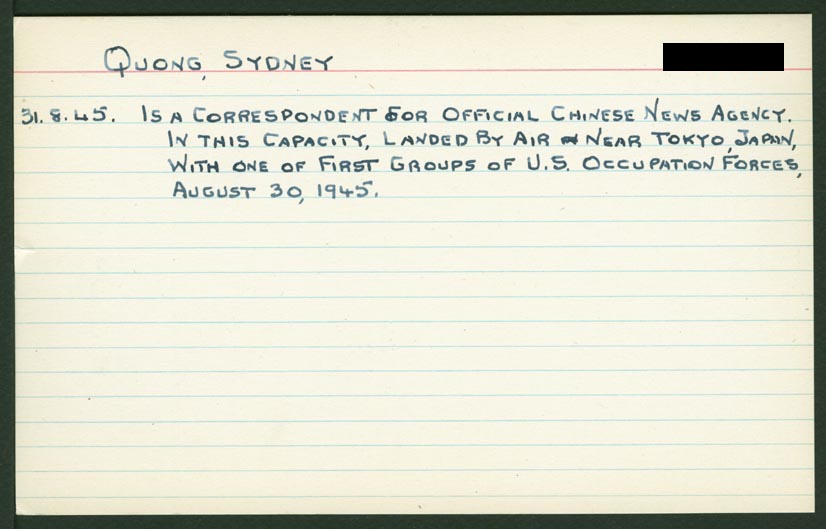 QUONG, SYDNEY
31.8.45. IS A CORRESPONDENT FOR OFFICIAL CHINESE NEWS AGENCY.
IN THIS CAPACITY, LANDED BY AIR NEAR TOKYO, JAPAN,
WITH ONE OF FIRST GROUPS OF U.S. OCCUPATION FORCES,
AUGUST 30, 1945.